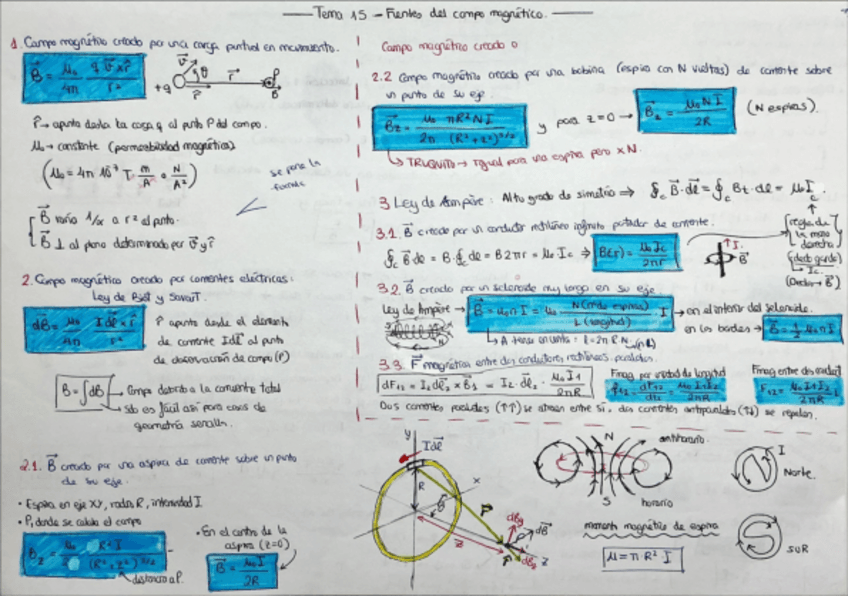 Tema 15 - Fuentes del campo magnético.
1. Campo magnético creado por una carga puntual en movimiento.
B⃗ = μ₀/4π · q v⃗ x r̂ / r²
+q v⃗ θ r̂ r⃗ P B⃗
r̂ → apunta desde la carga q al punto P del campo.
μ₀ → constante (permeabilidad magnética)
(μ₀ = 4π 10⁻⁷ T · m/A o N/A²)
se pone la
B⃗ varía 1/x a r² al punto.
B⃗ ⊥ al plano determinado por v⃗ y r̂
2. Campo magnético creado por corrientes eléctricas:
Ley de Biot y Savart.
dB⃗ = μ₀/4π · I dl⃗ x r̂ / r²
r̂ apunta desde el elemento
de corriente Idl⃗ al punto
de observación de campo (P)
B = ∫dB → Campo debido a la corriente total
→ sólo es fácil así para casos de
geometría sencilla.
2.1. B⃗ creado por una espira de corriente sobre un punto
de su eje.
• Espira en eje XY, radio R, intensidad I
• P, donde se calcula el campo
B_z = μ₀/2 · R² I / (R² + z²)^3/2
distancia a P.
• En el centro de la
espira (z=0)
B⃗ = μ₀ I / 2R
Campo magnético creado o
2.2 Campo magnético creado por una bobina (espira con N vueltas) de corriente sobre
un punto de su eje
B⃗_z = μ₀/2π · πR² N I / (R² + z²)^3/2 y para z=0 → B⃗_z = μ₀ N I / 2R (N espiras).
TRUQUITO → Igual para una espira pero x N.
3 Ley de Ampère: Alto grado de simetría ⇒ ∮c B⃗·dl⃗ = ∮c Bt·dl = μ₀ Ic.
3.1. B⃗ creado por un conductor rectilíneo infinito portador de corriente.
∮c B⃗ dl = B·∮c dl = B 2πr = μ₀·Ic ⇒ B(r) = μ₀ Ic / 2πr
↑ I. B⃗
(regla de
la mano
derecha)
Ic
(Dedo → B⃗)
3.2. B⃗ creado por un solenoide muy largo en su eje.
Ley de Ampère → B⃗ = μ₀ n I = μ₀ N (nº de espiras) / L (longitud) · I → en el interior del solenoide.
en los bordes → B⃗ = ½ μ₀ n I
A tener en cuenta: l = 2π R·N
3.3. F⃗ magnética entre dos conductores rectilíneos paralelos.
dF₁₂ = I₂ dl⃗₂ x B⃗₁ = I₂·dl⃗₂ · μ₀ I₁ / 2πR
Fmag por unidad de longitud
f₁₂ = dF₁₂/dl₂ = μ₀ I₁ I₂ / 2πR
F₁₂ = μ₀ I₁ I₂ / 2πR
Dos corrientes paralelas (↑↑) se atraen entre sí, dos corrientes antiparalelas (↑↓) se repelen.
y Idl⃗ R x θ r⃗ z⃗ dBy dB⃗ P dBz z
N antihorario.
S horario
momento magnético de espira
μ = π·R² I
I Norte.
SUR